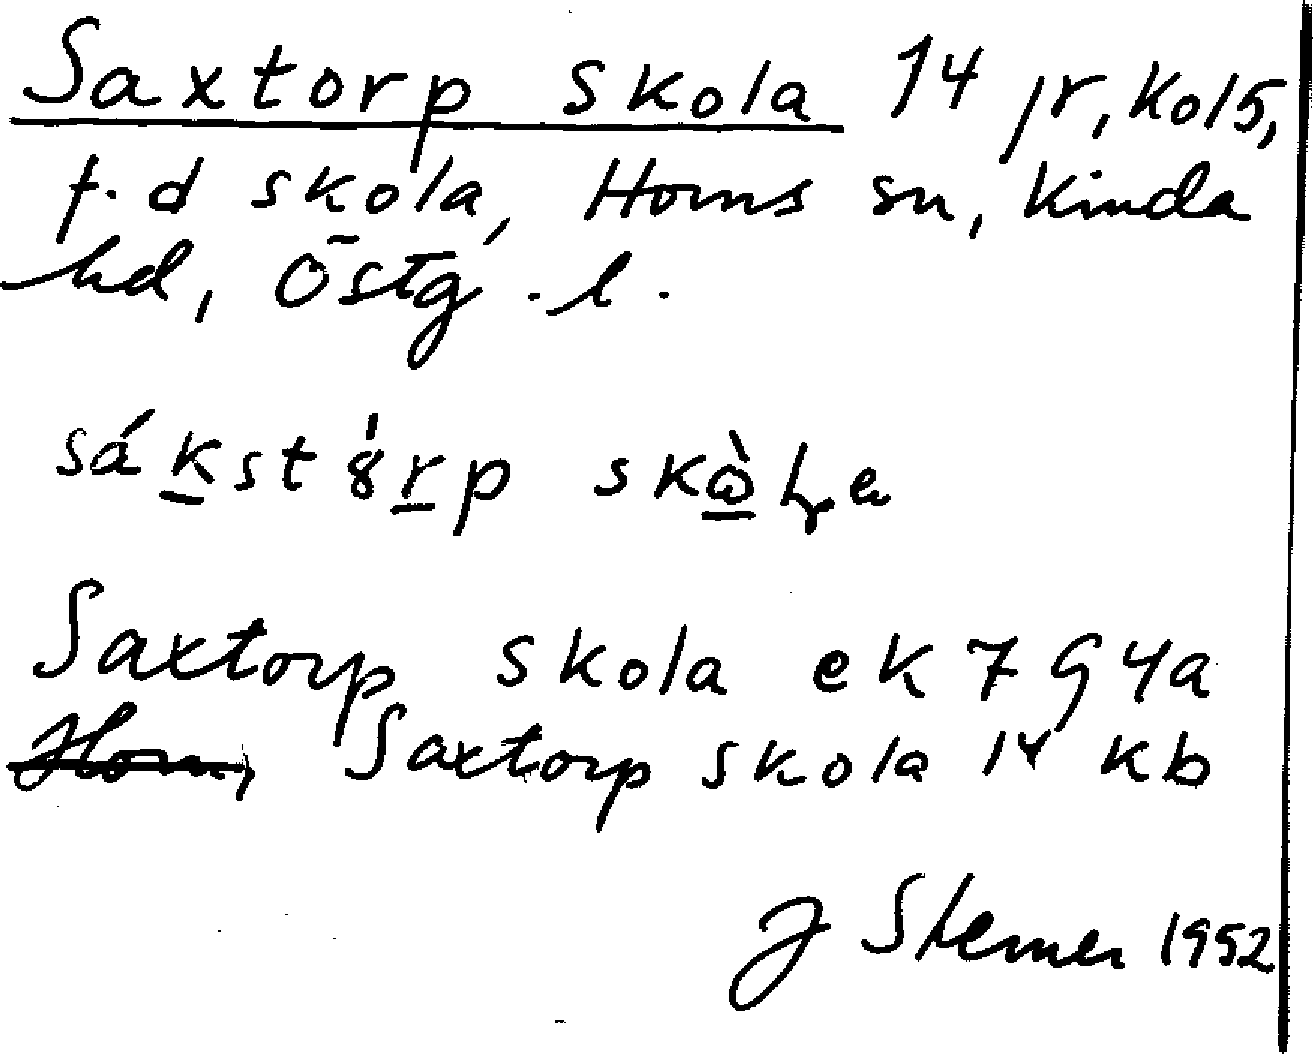 Saxtorp skola 14 jr, kol5,
f. d skola, Horns sn, Kinda
hd, Östg. l.
sákstȣ́rp skὼɭa
Saxtorp skola ek 7 G 4a
Horn, Saxtorp skola 14 kb
J Sterner 1952